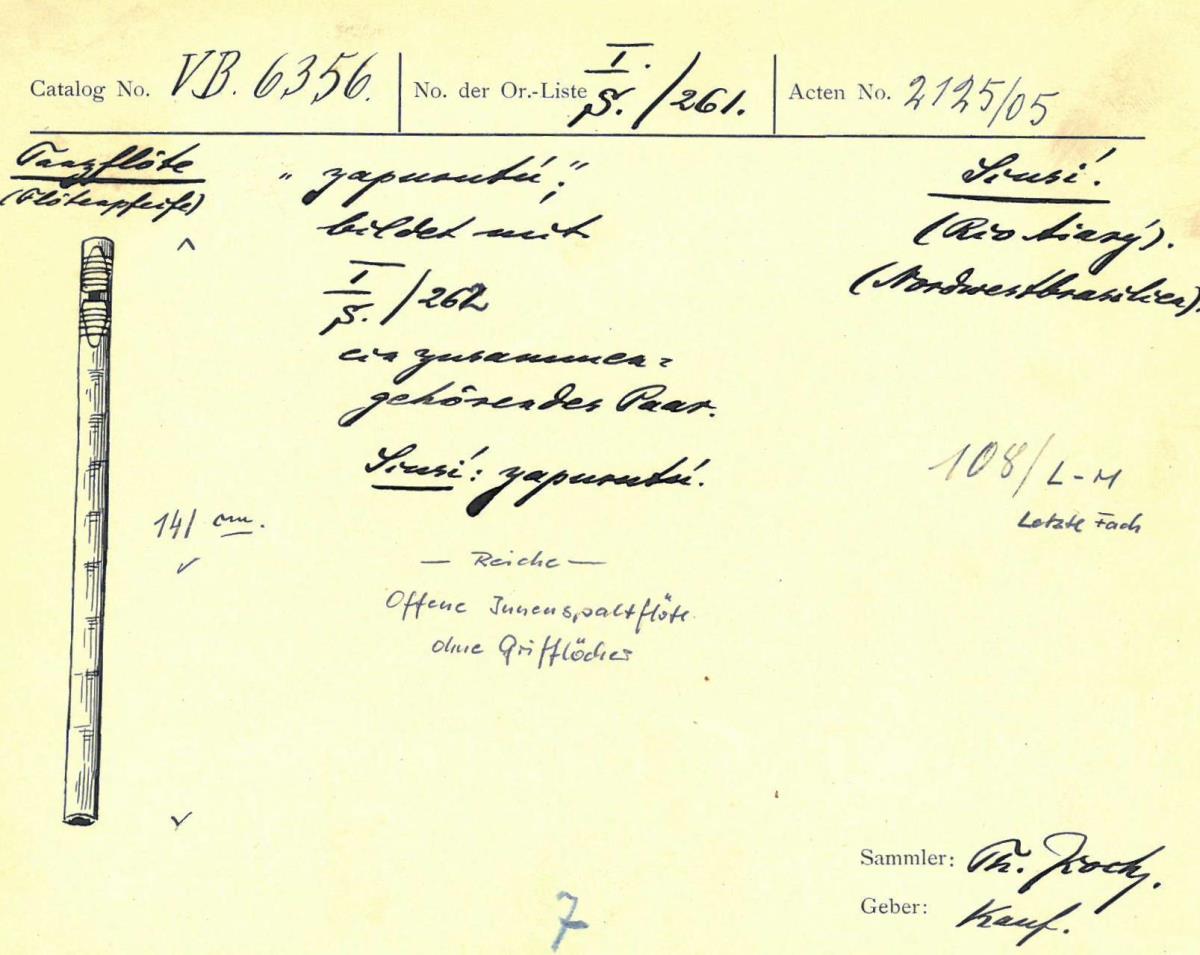 Catalog No. VB. 6356. No. der Or.-Liste I./S./261. Acten No. 2125/05
Tanzflöte „yapurutú“; Siusí.
(Flötenpfeife) bildet mit (Rio Aiarý).
I/S./262 (Nordwestbrasilien).
ein zusammen=
gehörendes Paar.
Siusí: yapurutú.
108/L-M
Letzte Fach
141 cm.
— Reiche —
Offene Innenspaltflöte
ohne Grifflöcher
Sammler: Th. Koch.
Geber: Kauf.
7